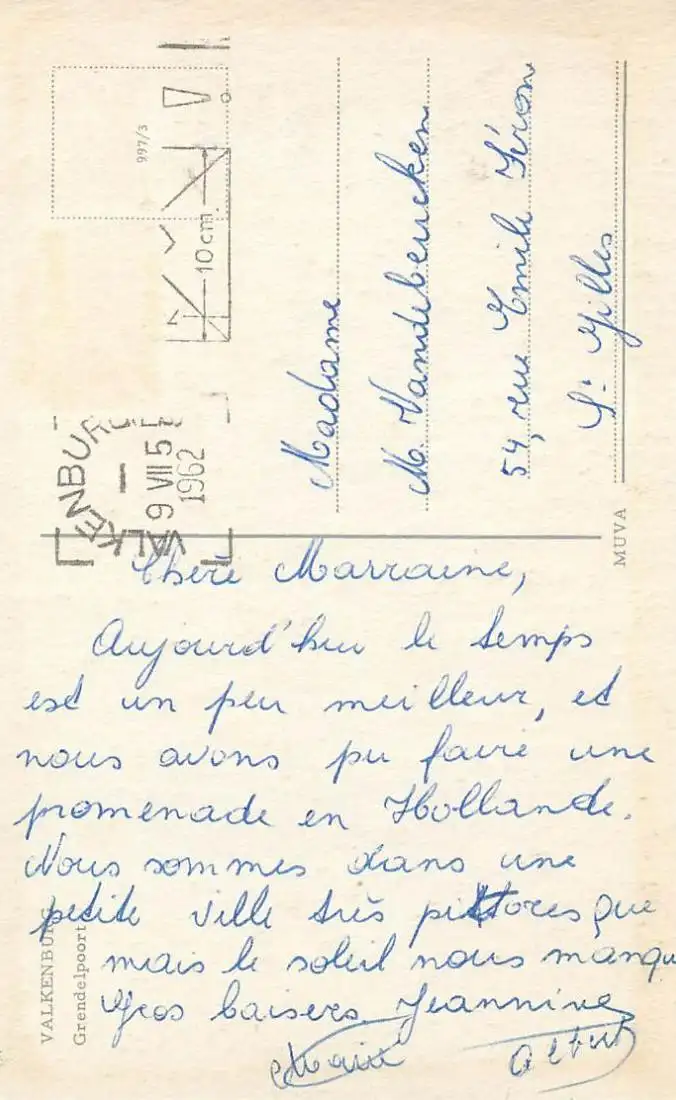 997/3
10 cm
VALKENBURG
9 VII 5
1962
Madame
M. Vandebeucken
54, rue Emile Féron
St Gilles
MUVA
Chère Marraine,
Aujourd'hui le temps
est un peu meilleur, et
nous avons pu faire une
promenade en Hollande.
Nous sommes dans une
petite ville très pittoresque
mais le soleil nous manqu
Gros baisers Jeannine
Albert
VALKENBURG
Grendelpoort